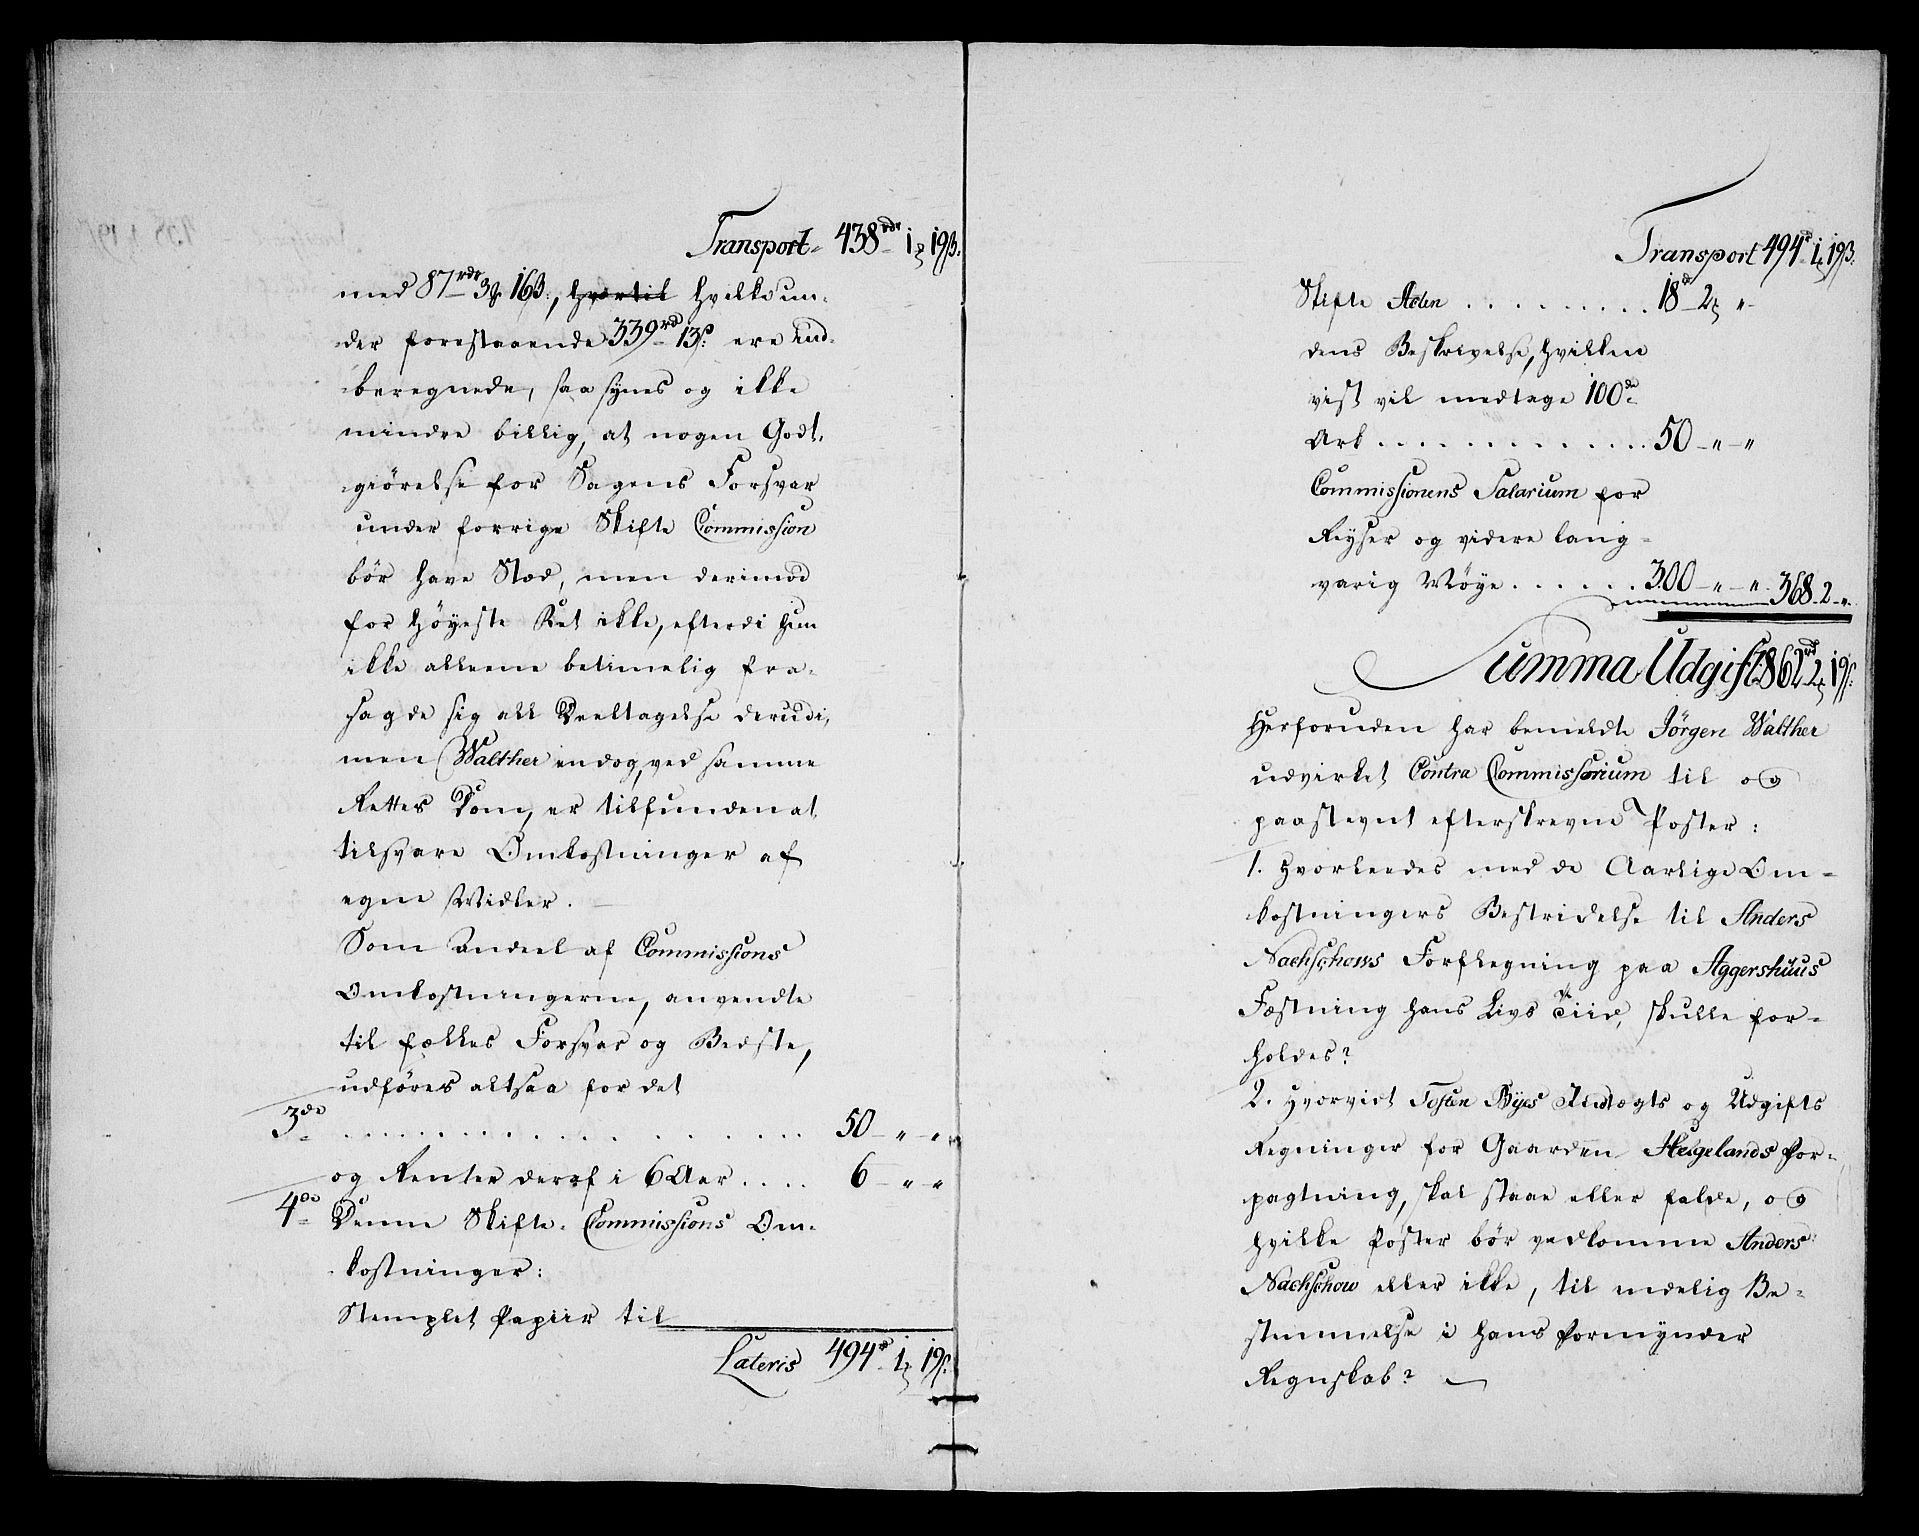 Transport 438rdr 1 19 ß.
med 87rdr 3 16 ß., hvortil hvilke un-
der forestaaende 339rd 13 ß. ere ind-
beregnede, saa synes og ikke
mindre billig, at nogen Godt-
giörelse for Sagens Forsvar
under forrige Skifte Commission
bör have Stæd, men derimod
for Höyeste Ret ikke, efterdi hun
ikke alleene betimelig fra-
sagde sig all Deeltagelse derudi,
men Walther endog, ved samme
Rettes Dom, er tilfunden at
tilsvare Omkostninger af
egne Midler.
Som Andeel af Commissions
Omkostningerne, anvendte
til fælles Forsvar og Bedste,
udföres altsaa for det
3de . . . . . . . . . . 50 – " – "
og Renter deraf i 6 Aar . . . . 6 – " "
4de Denne Skifte Commissions Om-
kostninger:
Stemplet Papiir til
Lateris 494rd 1 19 ß.
Transport 494rd 1 19 ß.
Skifte Acten . . . . . . . . . 18rd 2 "
dens Beskrivelse, hvilken
vist vil medtage 100de
Ark . . . . . . . . . . . . 50 – " – "
Commissionens Salarium for
Reyser og videre lang-
varig Möye . . . . . . 300 – " – ". 368 – 2 – ".
Summa Udgift 862rd 2 19 ß.
Herforuden har bemeldte Jörgen Walther
udvirket Contra Commissorium til og
paastevnt efterskrevne Poster:
1. Hvorleedes med de Aarlige Om-
kostningers Bestridelse til Anders
Nachschows Forflegning paa Aggershuus
Fæstning hans Livs Tiid, skulle for-
holdes?
2. Hvorvidt Tosten Byes Indtægts og Udgifts
Regninger for Gaarden Helgelands For-
pagtning, skal staae eller falde, og
hvilke Poster bör vedkomme Anders
Nachschow eller ikke, til endelig Be-
stemmelse i hans Formynder
Regnskab? –